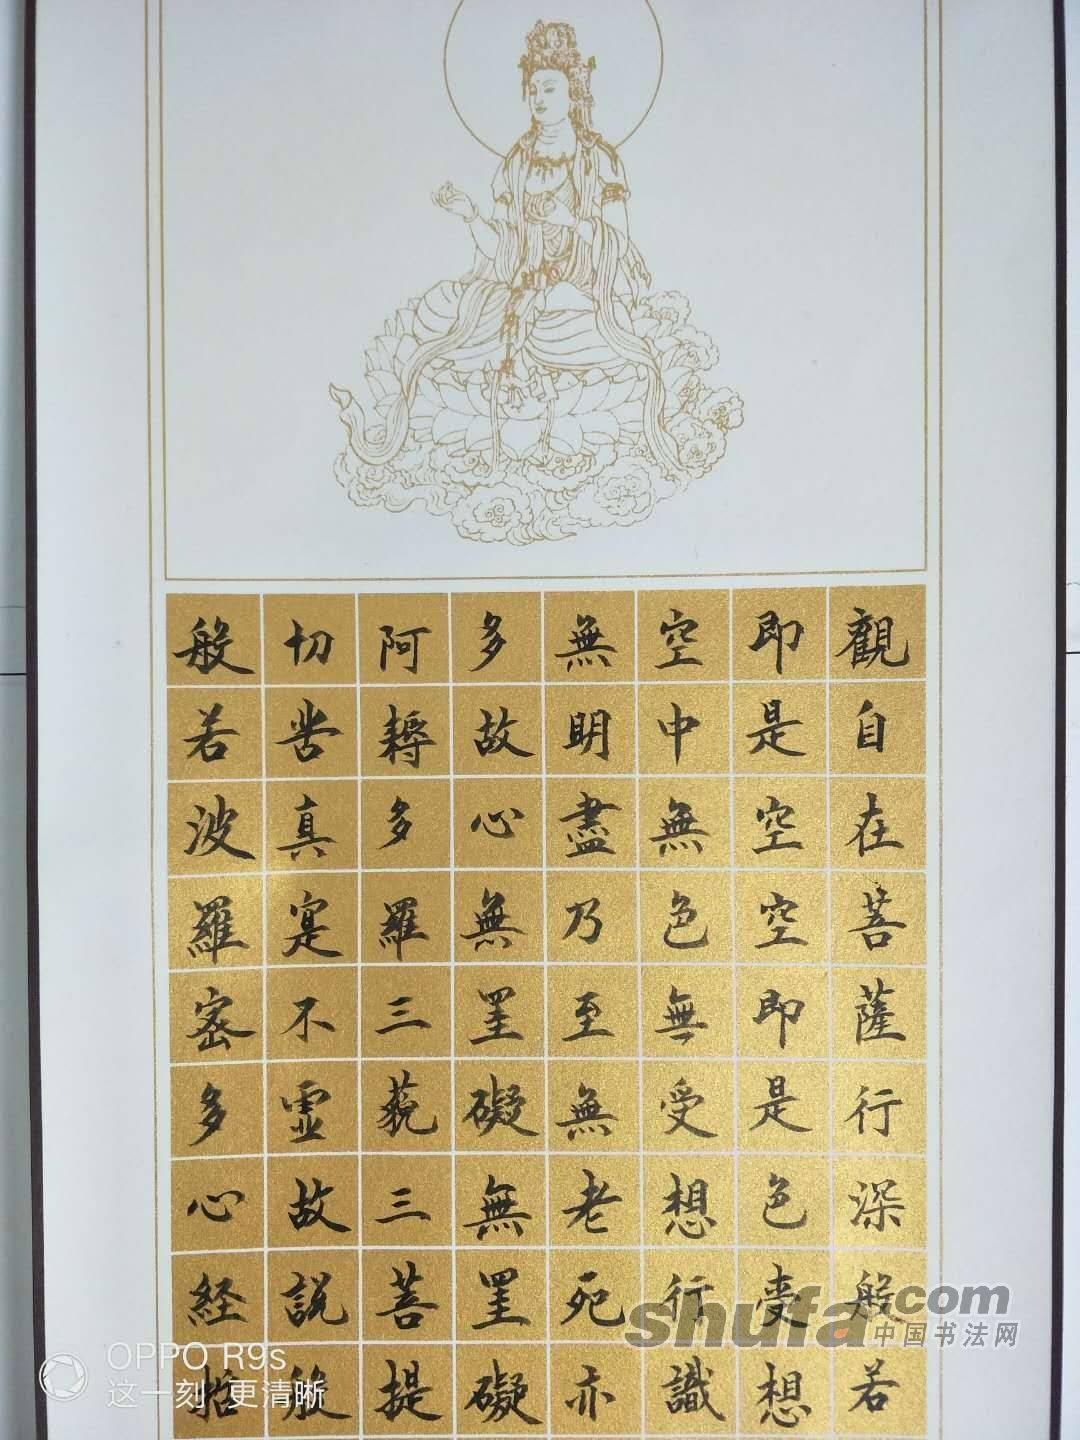 觀自在菩薩行深般若
即是空空即是色受想
空中無色無受想行識
無明盡乃至無老死亦
多故心無罣礙無罣礙
阿耨多羅三藐三菩提
切苦真實不虛故說般
般若波羅蜜多心経
shufa.com
中国书法网
OPPO R9s
这一刻 更清晰